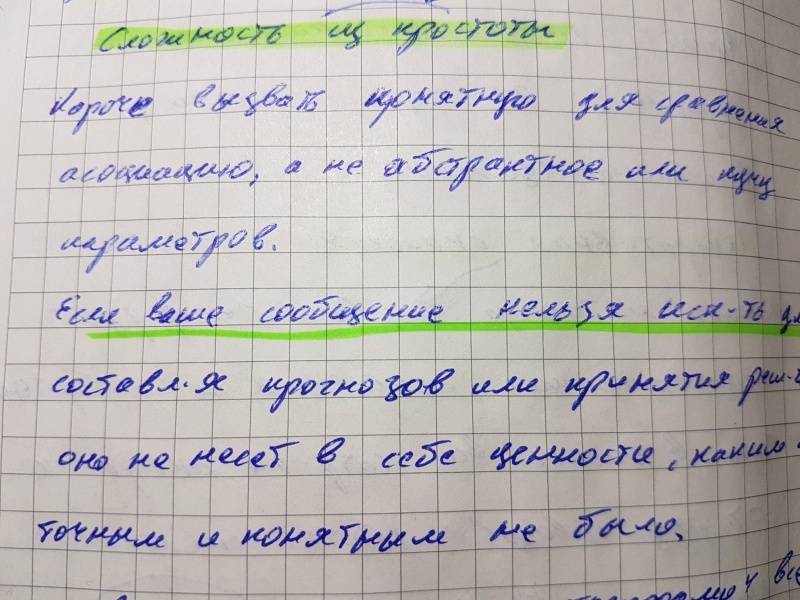 Сложность из простоты
Короче вызвать понятную для сравнения
асоциацию, а не абстрактное или кучу
параметров.
Если ваше сообщение нельзя исп-ть для
составл-я прогнозов или принятия реш-
оно не несет в себе ценности, каким
точным и понятным не было.
все